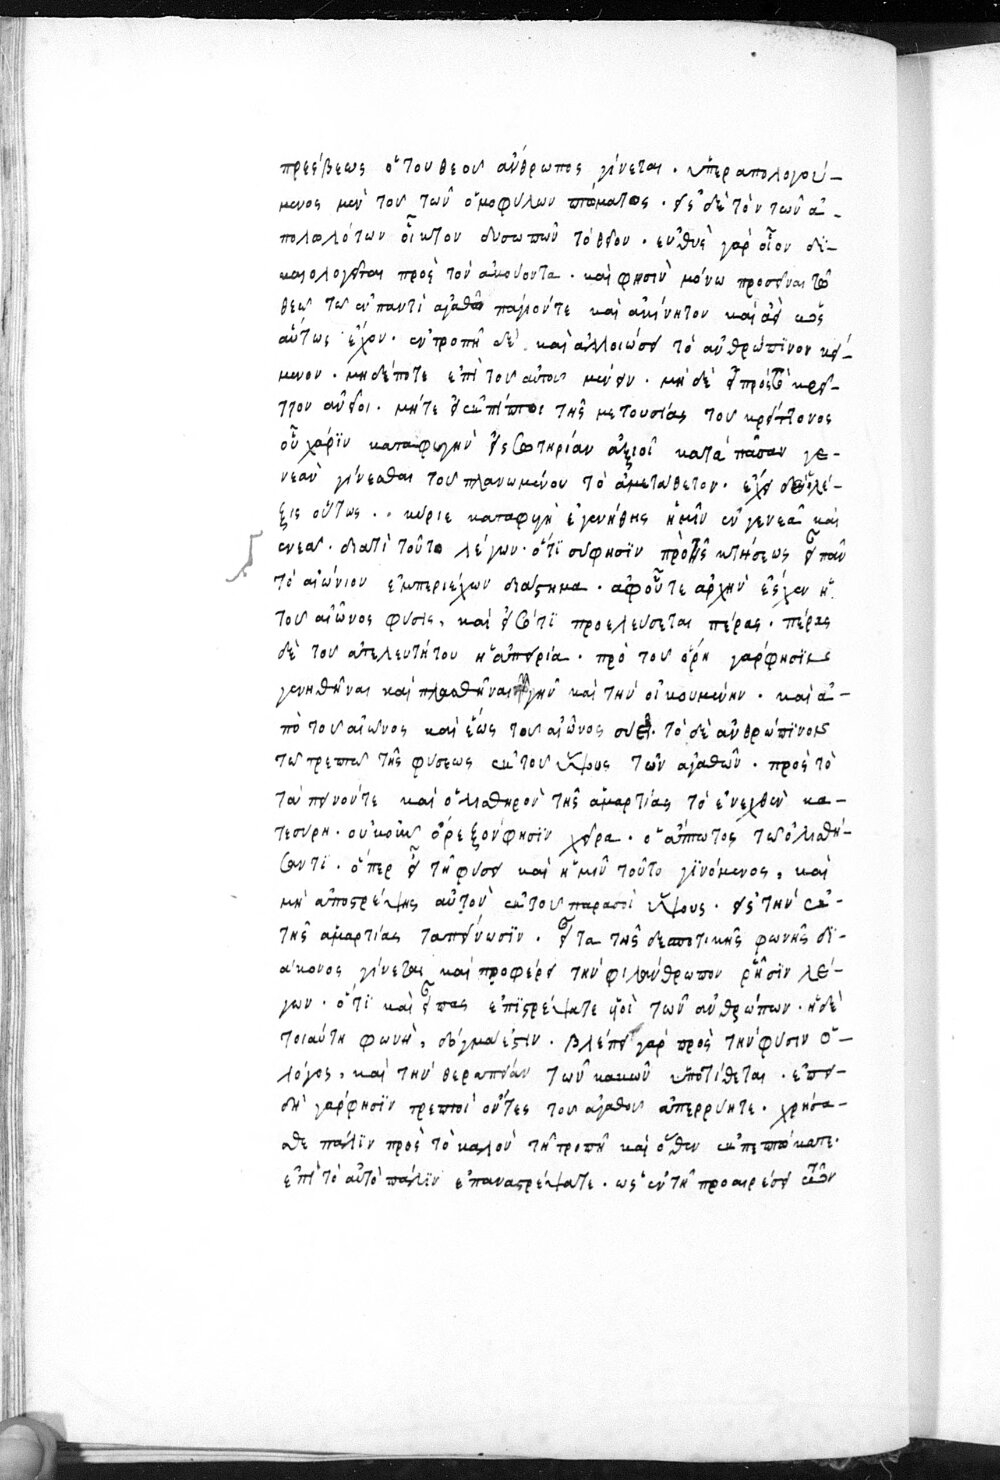 πρέσβεως ὁ του θεου ἄνθρωπος γίνεται · ὑπεραπολογού-
μενος μὲν του τῶν ὁμοφύλων πτώματος · εἰς δὲ τὸν τῶν ἀ-
πολωλότων οἶκτον δυσωπῶν τὸ θεῖον · εὐθὺς γὰρ οἷον δϊ-
καιολογεῖται πρὸς τὸν ἀκούοντα · καὶ φησὶν μόνω προσεῖναι τῶ
θεῶ τω ἐν παντὶ ἀγαθῶ παγιόν τε καὶ ἀκίνητον καὶ ἀεὶ ὡς
αὕτως ἔχον · ἐν τροπῆ δὲ καὶ ἀλλοιώσει τὸ ἀνθρώπϊνον κεί-
μενον · μηδέποτε ἐπὶ του αὐτου μένειν · μὴ δὲ εἰ πρὸς τὸ κρεῖ-
ττον αὔξοι · μήτε εἰ ἐκπίπτοι τῆς μετουσίας του κρείττονος
οὗ χάρϊν καταφυγὴν εἰς σωτηρίαν ἀξιοῖ κατὰ πᾶσαν γε-
νεὰν γίνεσθαι του πλανωμένου τὸ ἀμετάθετον · ἔχει δὲ ἡ λέ-
ξις οὕτως · · κύριε καταφυγὴ ἐγενήθης ἡμῖν ἐν γενεᾶ καὶ
γενεᾶ · διατὶ τοῦτο λέγων · ὅτϊ συ φησϊν πρὸ τῆς κτήσεως εἶ πᾶν
τὸ αἰώνιον ἐμπεριέχων διάστημα · ἀφοῦ τε ἀρχὴν ἔσχεν ἡ
του αἰῶνος φυσις, καὶ εἰς ὅ τϊ προελευσεται πέρας · πέρας
δὲ του ἀτελευτήτου ἡ ἀπειρία · πρὸ του ὄρη γὰρ φησϊν
γενηθῆναι καὶ πλασθῆναι τὴν γῆν καὶ τὴν οἰκουμένην · καὶ ἀ-
πὸ του αἰωνος καὶ ἕως του αἰῶνος συ εἶ · τὸ δὲ ἀνθρώπϊνον
τω τρεπτω τῆς φυσεως ἐκ του ὕψους τῶν ἀγαθῶν · πρὸς τὸ
ταπεινόν τε καὶ ὀλισθηρὸν τῆς ἁμαρτίας τὸ ἐνεχθὲν κα-
τεσυρη · οὐκοῦν ὄρεξον φησϊν χεῖρα · ὁ ἄπτωτος τω ὀλισθή-
σαντϊ · ὅπερ εἶ τῆ φυσει καὶ ἡμῖν τοῦτο γϊνόμενος, καὶ
μὴ ἀποστρέψης αὐτὸν ἐκ του παρα σοὶ ὕψους · εἰς τὴν ἐκ
τῆς ἁμαρτίας ταπείνωσϊν · εἶτα τῆς δεσποτικῆς φωνῆς δϊ-
άκονος γίνεται καὶ προφέρει τὴν φιλάνθρωπον ῥῆσϊν λέ-
γων · ὅτϊ καὶ εἶπας ἐπϊστρέψατε υἱοὶ τῶν ἀνθρώπων · ἡ δὲ
τοιαύτη φωνὴ, δόγμα ἐστϊν · βλέπει γὰρ πρὸς τὴν φύσιν ὁ
λόγος, καὶ τὴν θεραπείαν τῶν κακῶν ὑποτίθεται · ἐπει-
δὴ γὰρ φησϊν τρεπτοὶ ὄντες του ἀγαθου ἀπερρύητε · χρήσα-
σθε πάλϊν πρὸς τὸ καλὸν τῆ τροπῆ καὶ ὅθεν ἐκπεπτώκατε ·
ἐπὶ τὸ αὐτὸ πάλϊν ἐπαναστρέψατε · ὡς ἐν τῆ προαιρέσει τῶν